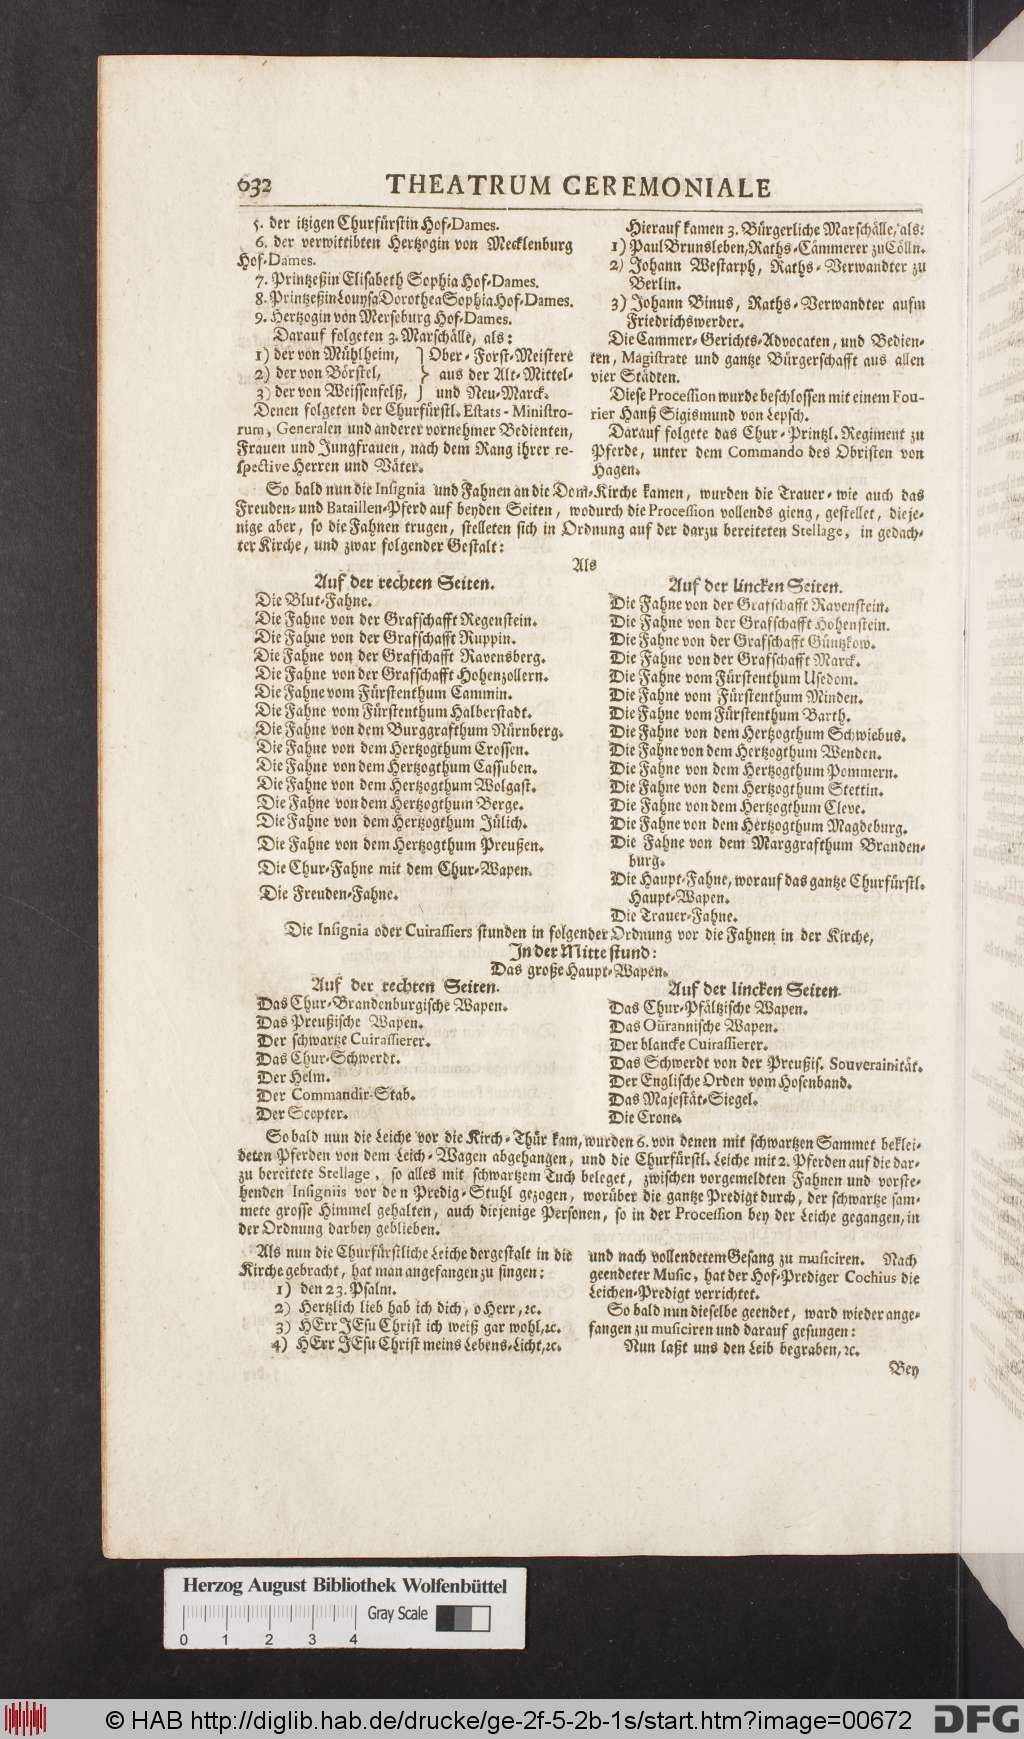 632 THEATRUM CEREMONIALE
5. der itzigen Churfürstin Hof-Dames.
6. der verwittibten Hertzogin von Mecklenburg
Hof-Dames.
7. Printzeßin Elisabeth Sophia Hof-Dames.
8. Printzeßin Louysa Dorothea Sophia Hof-Dames.
9. Hertzogin von Merseburg Hof-Dames.
Darauf folgeten 3. Marschälle, als:
1) der von Mühlheim, } Ober-Forst-Meistere
2) der von Börstel, } aus der Alt-Mittel-
3) der von Weissenfelß, } und Neu-Marck.
Denen folgeten der Churfürstl. Estats-Ministro-
rum, Generalen und anderer vornehmer Bedienten,
Frauen und Jungfrauen, nach dem Rang ihrer re-
spective Herren und Väter.
Hierauf kamen 3. Bürgerliche Marschälle, als:
1) Paul Brunsleben, Raths-Cämmerer zu Cölln.
2) Johann Westarph, Raths-Verwandter zu
Berlin.
3) Johann Binus, Raths-Verwandter aufm
Friedrichswerder.
Die Cammer-Gerichts-Advocaten, und Bedien-
ten, Magistrate und gantze Bürgerschafft aus allen
vier Städten.
Diese Procession wurde beschlossen mit einem Fou-
rier Hanß Sigismund von Lepsch.
Darauf folgete das Chur-Printzl. Regiment zu
Pferde, unter dem Commando des Obristen von
Hagen.
So bald nun die Insignia und Fahnen an die Dom-Kirche kamen, wurden die Trauer- wie auch das
Freuden- und Bataillen-Pferd auf beyden Seiten, wodurch die Procession vollends gieng, gestellet, dieje-
nige aber, so die Fahnen trugen, stelleten sich in Ordnung auf der darzu bereiteten Stellage, in gedach-
ter Kirche, und zwar folgender Gestalt:
Als
Auf der rechten Seiten.
Die Blut-Fahne.
Die Fahne von der Grafschafft Regenstein.
Die Fahne von der Grafschafft Ruppin.
Die Fahne von der Grafschafft Ravensberg.
Die Fahne von der Grafschafft Hohenzollern.
Die Fahne vom Fürstenthum Cammin.
Die Fahne vom Fürstenthum Halberstadt.
Die Fahne von dem Burggrafthum Nürnberg.
Die Fahne von dem Hertzogthum Crossen.
Die Fahne von dem Hertzogthum Cassuben.
Die Fahne von dem Hertzogthum Wolgast.
Die Fahne von dem Hertzogthum Berge.
Die Fahne von dem Hertzogthum Jülich.
Die Fahne von dem Hertzogthum Preußen.
Die Chur-Fahne mit dem Chur-Wapen.
Die Freuden-Fahne.
Auf der lincken Seiten.
Die Fahne von der Grafschafft Ravenstein.
Die Fahne von der Grafschafft Hohenstein.
Die Fahne von der Grafschafft Güntzkow.
Die Fahne von der Grafschafft Marck.
Die Fahne vom Fürstenthum Usedom.
Die Fahne vom Fürstenthum Minden.
Die Fahne vom Fürstenthum Barth.
Die Fahne von dem Hertzogthum Schwiebus.
Die Fahne von dem Hertzogthum Wenden.
Die Fahne von dem Hertzogthum Pommern.
Die Fahne von dem Hertzogthum Stettin.
Die Fahne von dem Hertzogthum Cleve.
Die Fahne von dem Hertzogthum Magdeburg.
Die Fahne von dem Marggrafthum Branden-
burg.
Die Haupt-Fahne, worauf das gantze Churfürstl.
Haupt-Wapen.
Die Trauer-Fahne.
Die Insignia oder Cuirassiers stunden in folgender Ordnung vor die Fahnen in der Kirche,
In der Mitte stund:
Das große Haupt-Wapen.
Auf der rechten Seiten.
Das Chur-Brandenburgische Wapen.
Das Preußische Wapen.
Der schwartze Cuirassierer.
Das Chur-Schwerdt.
Der Helm.
Der Commandir-Stab.
Der Scepter.
Auf der lincken Seiten.
Das Chur-Pfältzische Wapen.
Das Oürannische Wapen.
Der blancke Cuirassierer.
Das Schwerdt von der Preußis. Souverainität.
Der Englische Orden vom Hosenband.
Das Majestät-Siegel.
Die Crone.
So bald nun die Leiche vor die Kirch-Thür kam, wurden 6. von denen mit schwartzen Sammet beklei-
deten Pferden von dem Leich-Wagen abgehangen, und die Churfürstl. Leiche mit 2. Pferden auf die dar-
zu bereitete Stellage, so alles mit schwartzem Tuch beleget, zwischen vorgemeldten Fahnen und vorste-
henden Insigniis vor den Predig-Stuhl gezogen, worüber die gantze Predigt durch, der schwartze sam-
mete grosse Himmel gehalten, auch diejenige Personen, so in der Procession bey der Leiche gegangen, in
der Ordnung darbey geblieben.
Als nun die Churfürstliche Leiche dergestalt in die
Kirche gebracht, hat man angefangen zu singen:
1) den 23. Psalm.
2) Hertzlich lieb hab ich dich, o Herr, ꝛc.
3) HErr JEsu Christ ich weiß gar wohl, ꝛc.
4) HErr JEsu Christ meins Lebens-Licht, ꝛc.
und nach vollendetem Gesang zu musiciren. Nach
geendeter Music, hat der Hof-Prediger Cochius die
Leichen-Predigt verrichtet.
So bald nun dieselbe geendet, ward wieder ange-
fangen zu musiciren und darauf gesungen:
Nun laßt uns den Leib begraben, ꝛc.
Bey
Herzog August Bibliothek Wolfenbüttel
Gray Scale
0 1 2 3 4
© HAB http://diglib.hab.de/drucke/ge-2f-5-2b-1s/start.htm?image=00672 DFG